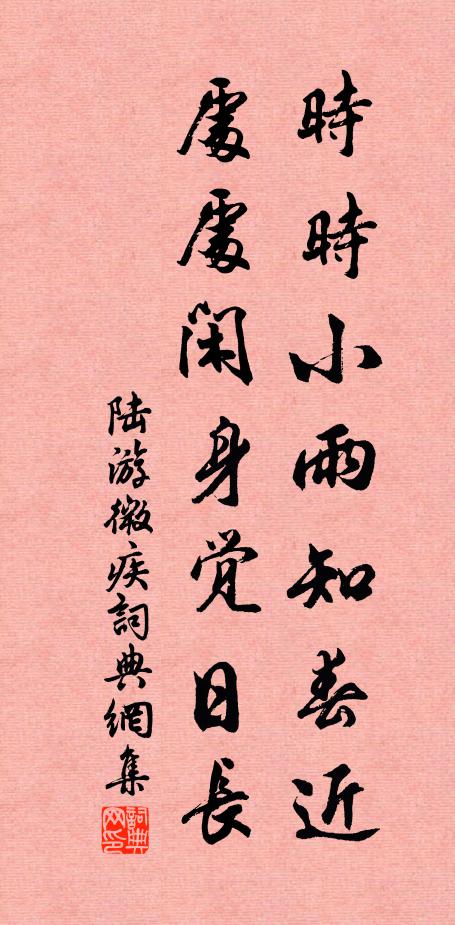 時時小雨知春近
處處闲身覺日長
陆游微疾詞典網集
詞典网印